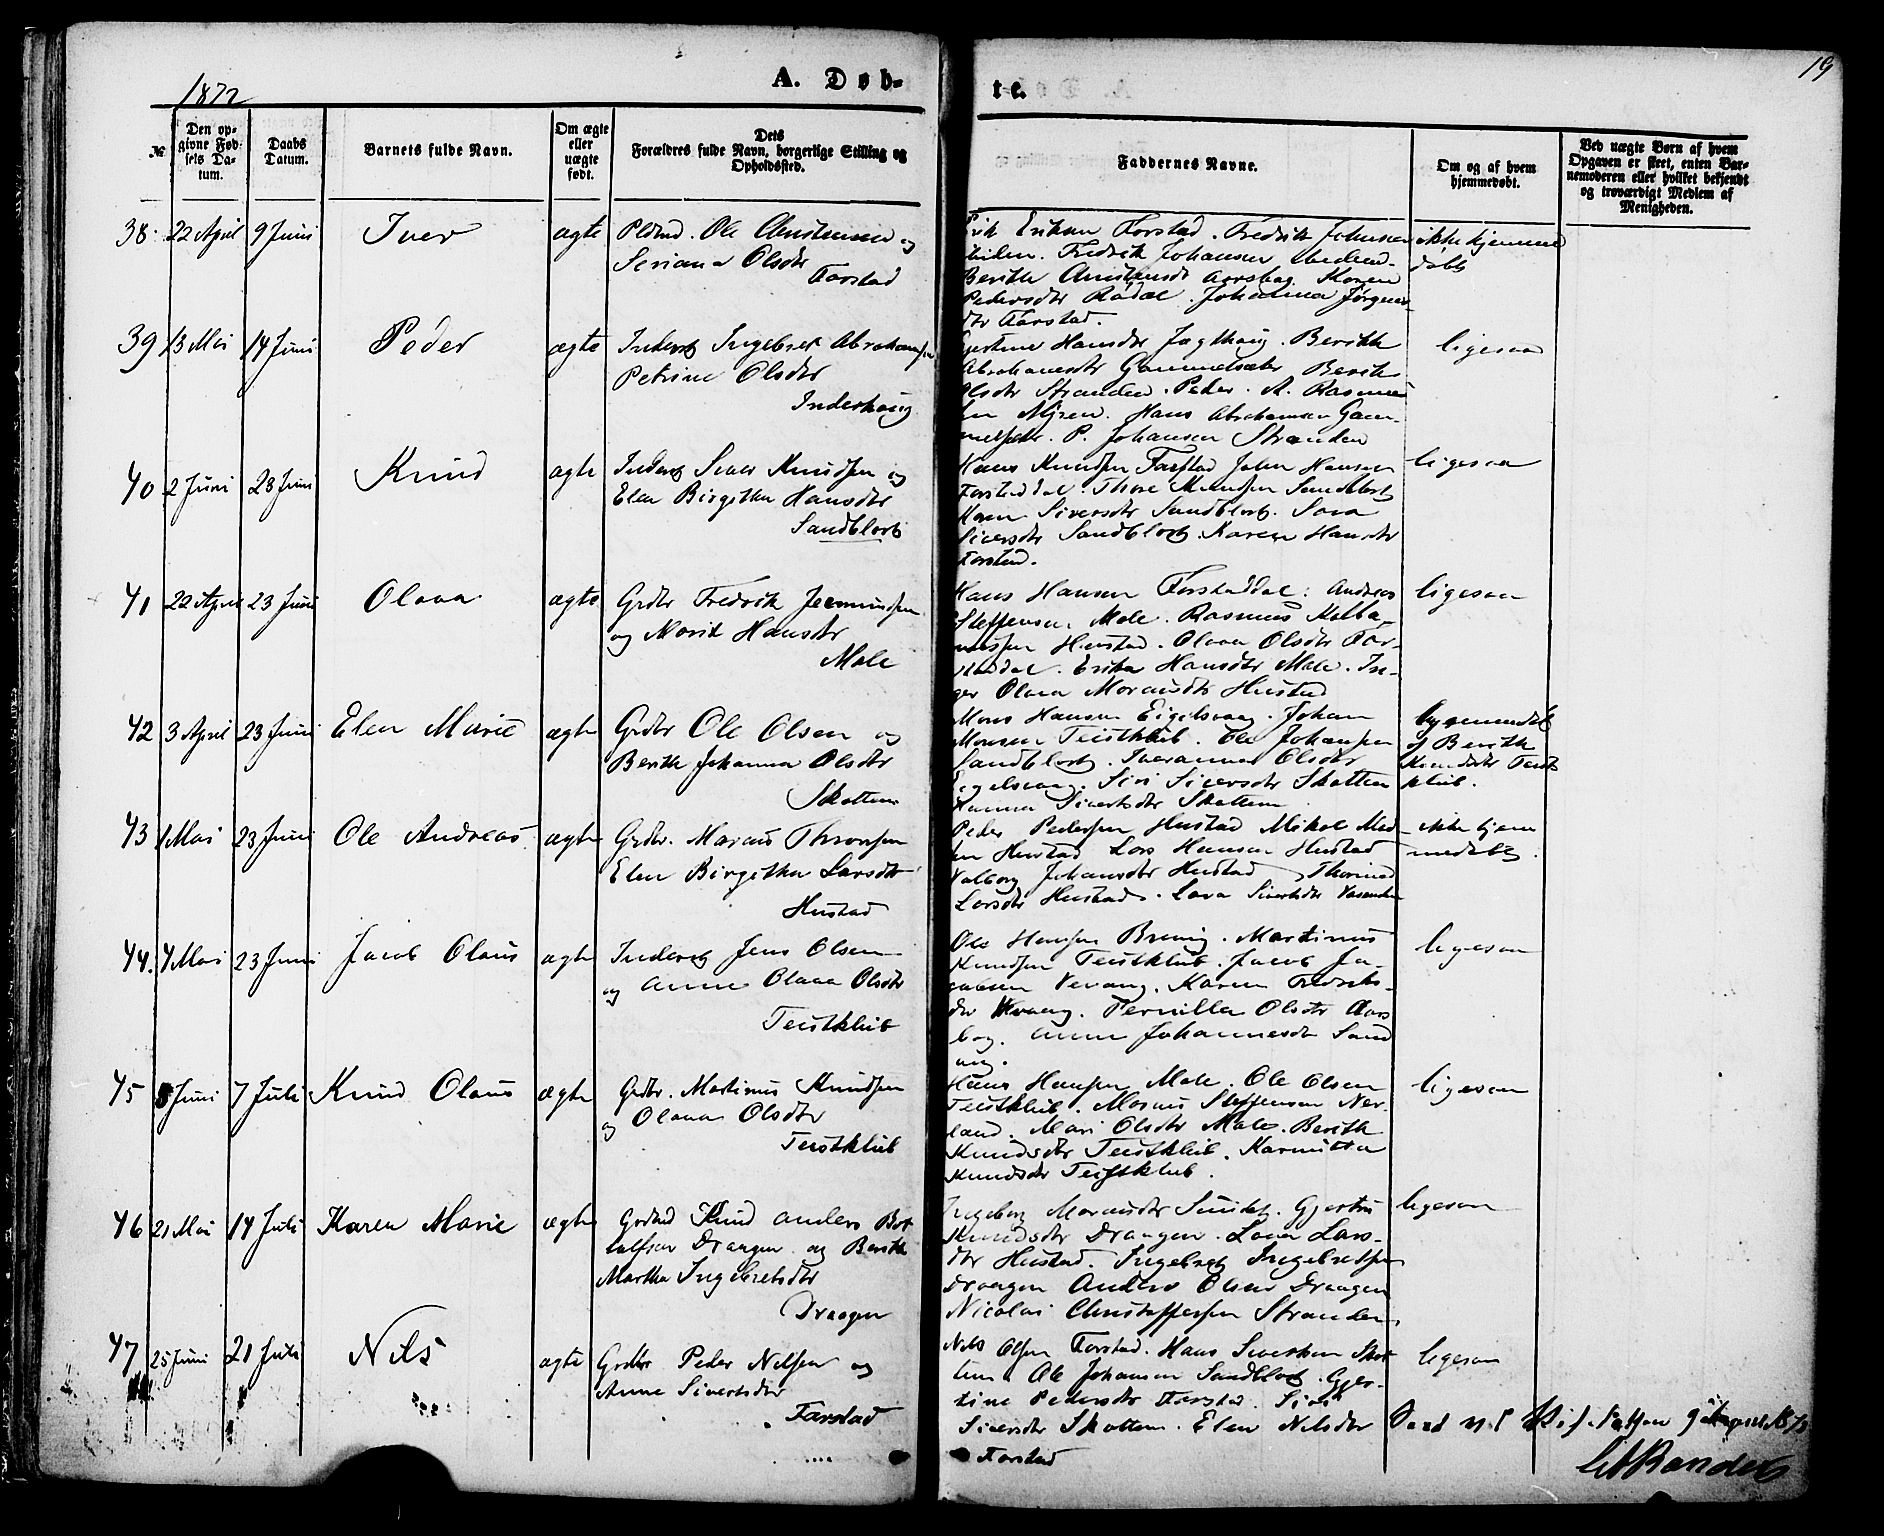 1872
A. Døb-
te.
19
№
Den op-
givne Fød-
sels Da-
tum.
Daabs
Datum.
Barnets fulde Navn.
Om ægte
eller
uægte
født.
Dets
Forældres fulde Navn, borgerlige Stilling og
Opholdssted.
Faddernes Navne.
Om og af hvem
hjemmedøbt.
Ved uægte Børn af hvem
Opgaven er skeet, enten Bar-
nemoderen eller hvilket bekjendt
og troværdigt Medlem af
Menigheden.
38. 22 April 9 Juni Iver ægte Ole Christensen og
Seriana Olsdtr
Farstad
Erik Eriksen Farstad. Fredrik Johansen
Fredrik Johansen
Berith Christensdt Karen
Pedersdtr Rødal. Johanna Jørgens-
dtr Farstad.
ikke hjemme
døbt
39 13 Mai 14 Juni Peder ægte Inderst Ingebret Abrahamsen
Petrine Olsdtr
Inderhaug
Gjertine Hansdtr Jægthaug. Berith
Abrahamsdtr Gammelsæter Berith
Olsdtr Stranden. Peder A. Rasmus
sen Myren. Hans Abrahamsen Gam-
melsætr. P. Johansen Stranden
ligesaa
40 2 Juni 23 Juni Knud ægte Inderst Siver Knudsen og
Elen Birgitha Hansdtr
Sandblost
Hans Knudsen Farstad John Hansen
Farstaddal. Thore Knudsen Sandblost
Karen Siversdtr Sandblost. Sara
Siversdtr Sandblost. Karen Hansdtr
Farstad.
ligesaa
41 22 April 23 Juni Olava ægte Grdbr Fredrik Jermundsen
og Marit Hansdtr
Male
Hans Hansen Farstaddal. Andreas
Steffensen Male. Rasmus
Hustad. Olava Olsdtr Far-
staddal. Erika Hansdtr Male. In-
ger Olava Morausdtr Hustad
ligesaa
42 3 April 23 Juni Elen Marie ægte Grdbr Ole Olsen og
Berith Johanna Olsdtr
Skottem
Mons Hansen Eigelsvaag. Johan
Monsen Teistklub. Ole Johansen
Sandblost. Iverianna Olsdtr
Eigelsvaag. Siri Siversdtr Skottem
Hanna Sivertsdtr Skottem
af Berith
Knudsdtr Teist
klub.
43 1 Mai 23 Juni Ole Andreas ægte Grdbr. Moraus Thronsen
Elen Birgitha Larsdtr
Hustad
Peder Pedersen Hustad Mikal Mad-
sen Hustad Lars Hansen Hustad
Valborg Johansdtr Hustad Thorine
Larsdtr Hustad. Lava Sivertsdtr
ikke hjem
medøbt.
44. 7 Mai 23 Juni Jacob Olaus ægte Inderst Jens Olsen
og Anne Olava Olsdtr
Teistklub
Ole Hansen Breivig. Martinus
Knudsen Teistklub. Jacob Ja-
cobsen Vevang. Karen Fredriks-
dtr Vevang. Pernilla Olsdtr Aars
bog. Anne Johannesdt Sand
ligesaa
45 Juni 7 Juli Knud Olaus ægte Grdbr. Martinus Knudsen
og Olava Olsdtr
Teistklub
Hans Hansen Male. Ole Olsen
Teistklub. Moraus Steffensen Ner-
land. Mari Olsdtr Male. Berith
Knudsdtr Teistklub. Karmitta
Knudsdtr Teistklub.
ligesaa
46 21 Mai 14 Juli Karen Marie ægte Knud Anders Bot
tolfsen Draagen og Berith
Martha Ingebretsdtr
Draagen
Ingeborg Morausdtr Gjertru
Knudsdtr Draagen. Lava Lars-
dtr Hustad. Ingebret Ingebretsen
Draagen Anders Olsen Draagen
Nicolai Christoffersen Stranden
ligesaa
47 25 Juni 21 Juli Nils ægte Grdbr Peder Nilsen og
Anne Sivertsdtr
Farstad
Nils Olsen Farstad. Hans Sivertsen Skot-
tem Ole Johansen Sandblost. Gjer-
tine Pedersdtr Farstad. Siri
Siversdtr Skottem. Elen Nilsdtr
Farstad
ligesaa